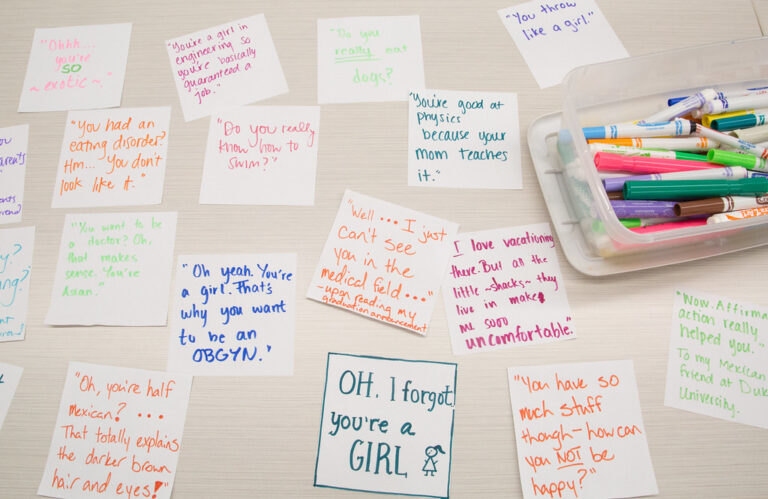 "Ohhh...
you're
SO
~ exotic ~"
"You're a girl in
engineering so
you're basically
guaranteed a
job."
"Do you
really eat
dogs?
"You throw
like a girl."
"You had an
eating disorder?
Hm... You don't
look like it."
"Do you really
know how to
swim?"
"You're good at
physics
because your
mom teaches
it."
parents
"You want to be
a doctor? Oh,
that makes
sense. You're
Asian."
"Oh yeah. You're
a girl. That's
why you want
to be an
OBGYN."
"Well... I just
can't see
you in the
medical field..."
-upon reading my
graduation announcement
I love vacationing
there. But all the
little ~shacks~ they
live in make
me sooo
uncomfortable."
"Wow. Affirma
action really
helped you."
To my Mexican
friend at Duk
University.
"Oh, you're half
mexican? ...
That totally explains
the darker brown
hair and eyes!"
OH, I forgot
you're a
GIRL
"You have so
much stuff
though-how can
you NOT be
happy?"